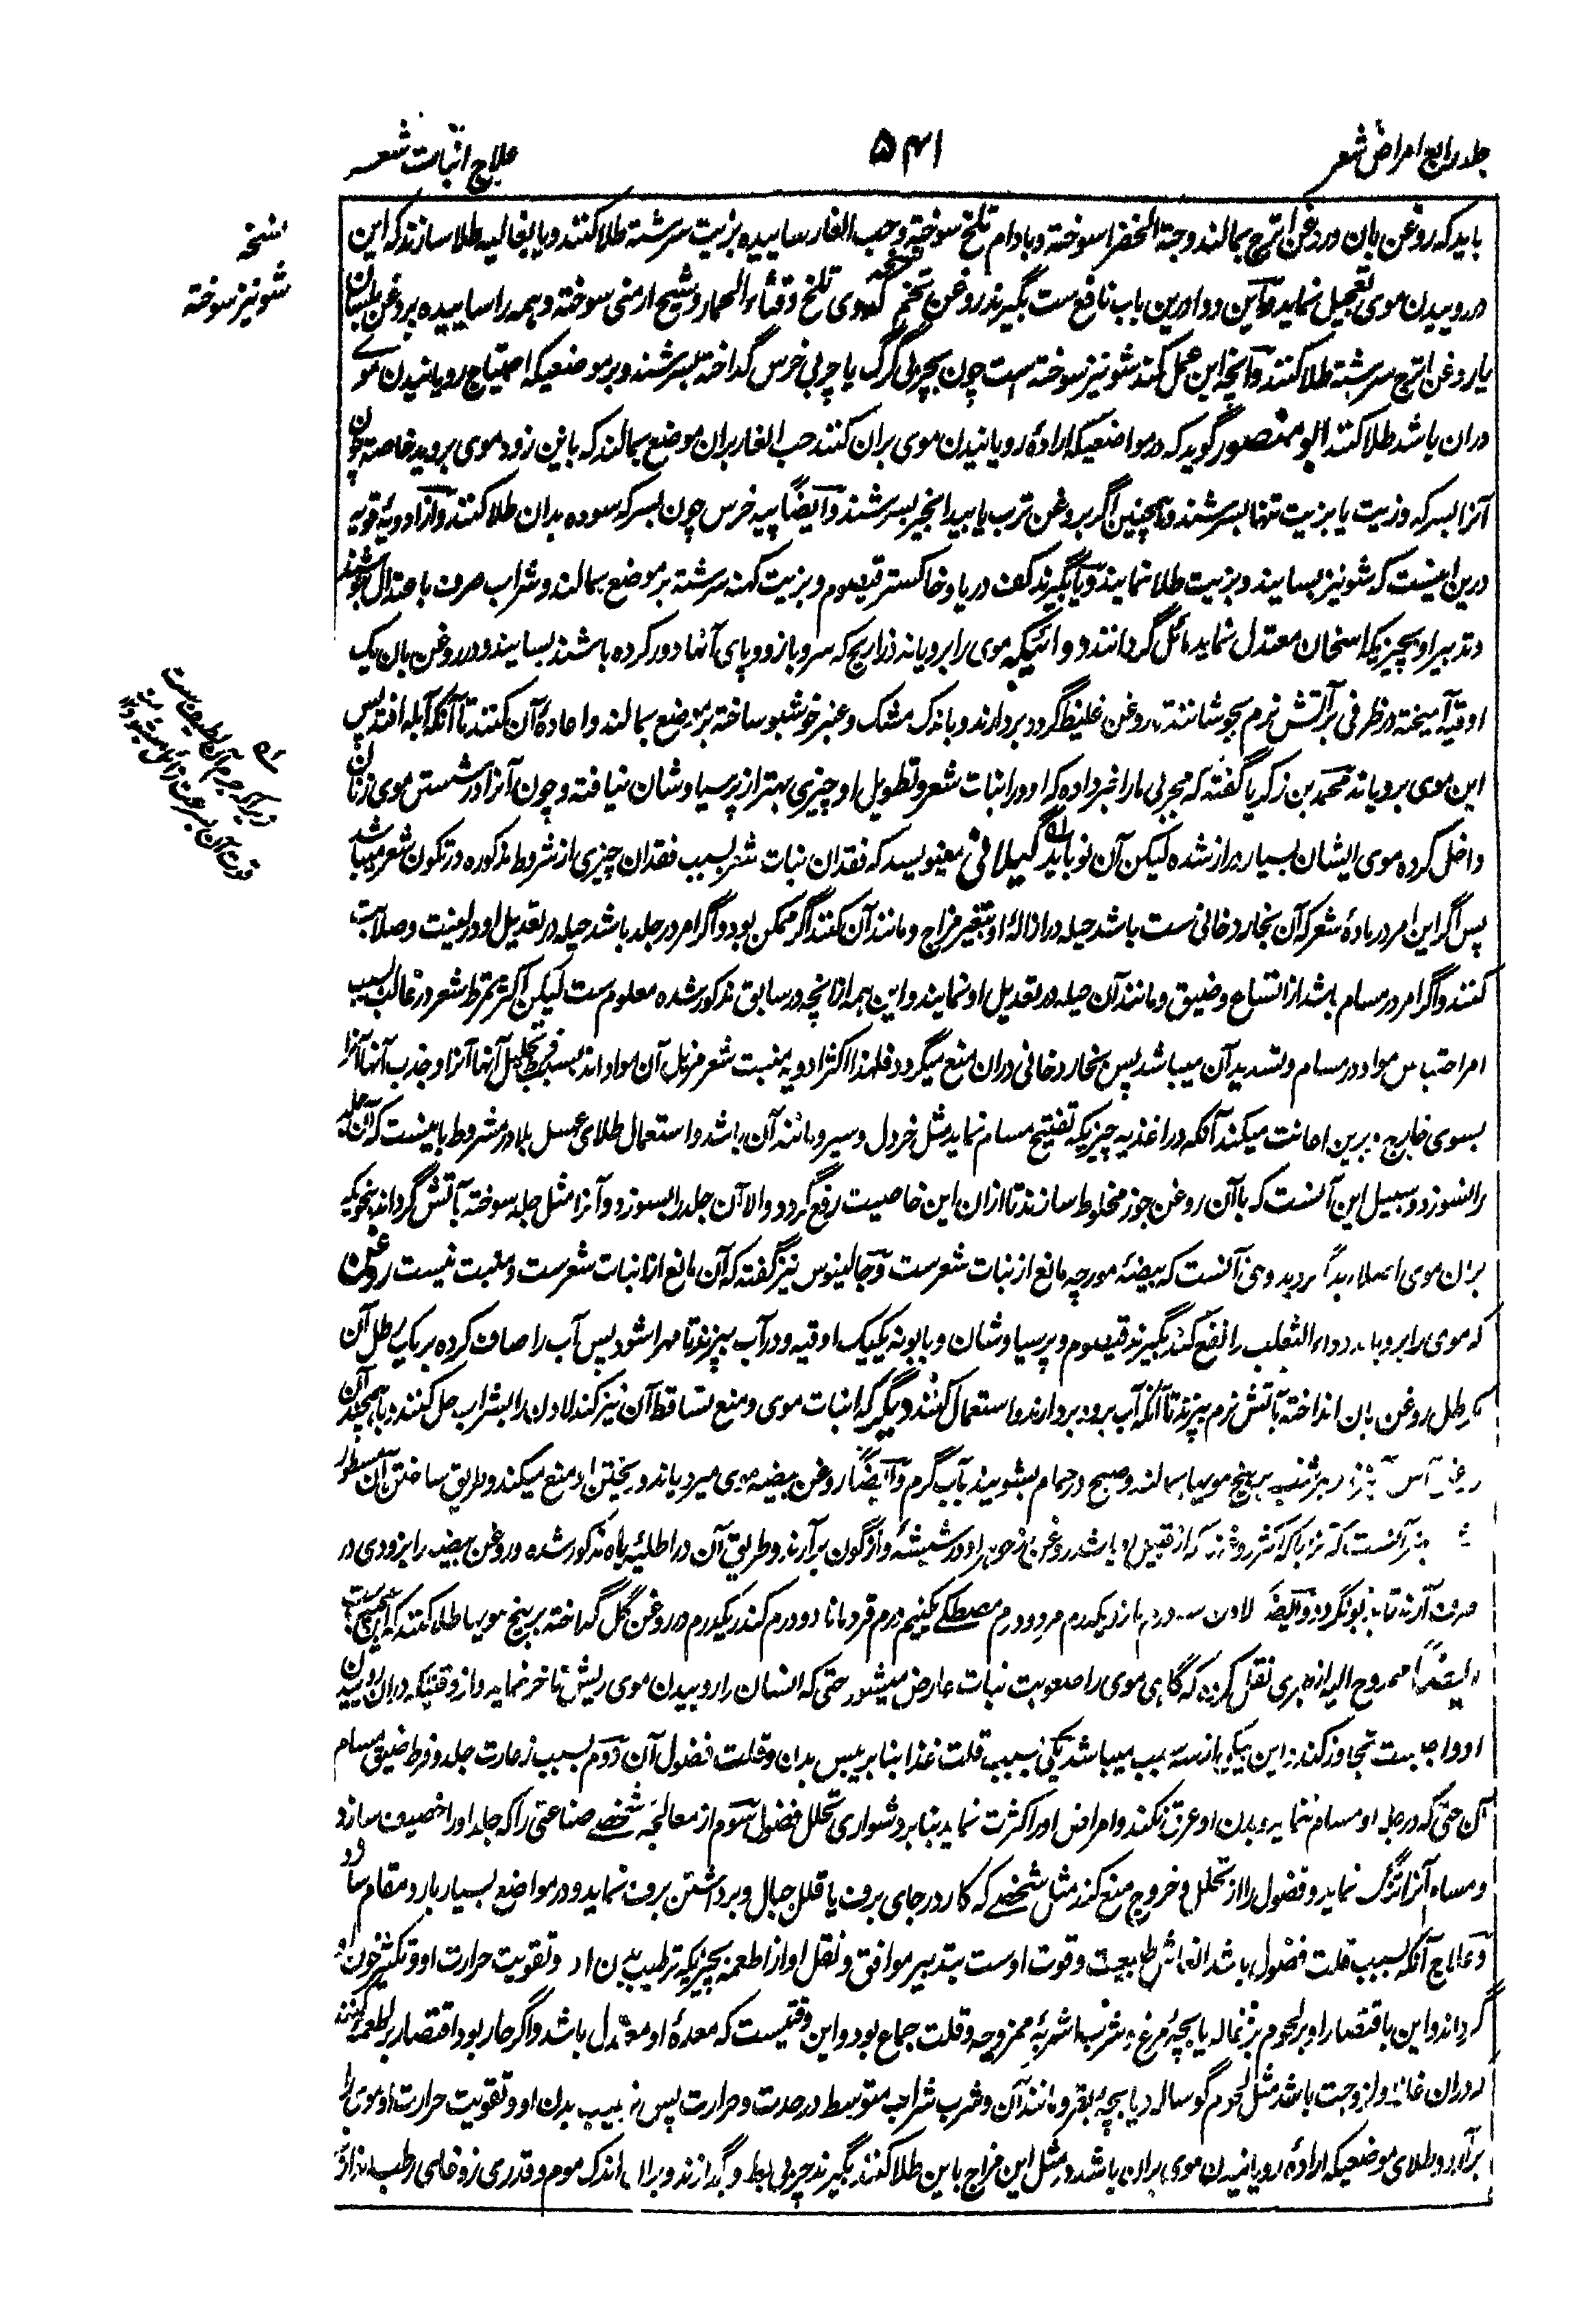 جلد رابع امراض شعر
۵۴۱
علاج انبات شعر
باید که روغن بان و روغن اترج بمالند وحبة الخضرا سوخته و بادام تلخ سوخته وحب الغار ساییده بزیت سرشته طلا کنند و یا بغالیه طلا سازند که این
در روییدن موی تعجیل نماید و این دوا درین باب نافع ست بگیرند روغن تخم کدوی تلخ و قثاء الحمار و شیح ارمنی سوخته و همه را ساییده بروغن بلسان
یا روغن اترج سرشته طلا کنند و آنچه این عمل کند شونیز سوخته است چون بچربی گرگ یا چربی خرس گداخته بسرشند و بر موضعیکه احتیاج رویانیدن موے
دران باشد طلا کنند ابو منصور گوید که در مواضعیکه ارادۀ رویانیدن موی بران کنند حب الغار بران موضع بمالند که باین زود موی بروید خاصته چون
آنرا بسرکه و زیت یا بزیت تنها بسرشند و همچنین اگر بروغن ترب یا بیدانجیر بسرشند و ایضاً پیه خرس چون بسرکه سوده بدان طلا کنند و از ادویۀ قویه
درین اینست که شونیز بسایند و بزیت طلا نمایند و یا بگیرند کف دریا و خاکستر قیصوم و بزیت کهنه سرشته بر موضع بمالند و شراب صرف باعتدال بنوشند
و تدبیر او بچیزیکه اسخان معتدل نماید مائل گردانند و دوائیکه موی را برویاند ذراریح که سر و بازو و پای آنها دور کرده باشند بسایند و در روغن بان یک
اوقیه آمیخته در ظرفی بر آتش نرم بجوشانند تا روغن غلیظ گردد بردارند و باندک مشک و عنبر خوشبو ساخته بر موضع بمالند و اعادۀ آن کنند تا آنکه آبله افتد پس
این موی برویاند محمد بن زکریا گفته که مجربی ما را خبر داده که او در انبات شعر و تطویل او چیزی بهتر از پرسیاوشان نیافته و چون آنرا در شستن موی زنان
داخل کرده موی ایشان بسیار دراز شده لیکن آن نو باید گیلانی مینویسد که فقدان نبات شعر بسبب فقدان چیزی از شروط مذکوره در تکون شعر میباشد
پس اگر این امر در مادۀ شعر که آن بخار دخانی ست باشد حیله در ازالۀ او بتغیر مزاج و مانند آن کنند اگر ممکن بود و اگر امر در جلد باشد حیله در تعدیل او در لینت و صلابت
کنند و اگر امر در مسام باشد از اتساع و ضیق و مانند آن حیله در تعدیل او نمایند و این همه از آنچه در سابق مذکور شده معلوم ست لیکن اکثر تمرط شعر در غالب بسبب
امر احتباس مواد در مسام و تسدید آن میباشد پس بخار دخانی دران منع میگردد فلهذا اکثر ادویه منبت شعر مزیل آن مواد اند بسبب فرط تحلیل آنها آنرا و جذب آنها آنرا
بسوی خارج و برین اعانت میکند آنکه در اغذیه چیزیکه تفتیح مسام نماید مثل خردل و سیر و مانند آن باشد و استعمال طلای عسل بلادر مشروط باینست که آن جلد
را نسوزد و سبیل این آنست که باآن روغن جوز مخلوط سازند تا ازان این خاصیت رفع گردد و الا آن جلد را بسوزد و آنرا مثل جلد سوخته بآتش گرداند بنحویکه
بران موی اصلا نروید و حق آنست که بیضۀ مورچه مانع از نبات شعر ست و جالینوس نیز گفته که آن مانع از انبات شعر ست و منبت نیست روغن
که موی را برویاند و داء الثعلب را نفع کند بگیرند قیصوم و پرسیاوشان و بابونه یکیک اوقیه و در آب بپزند تا مهرا شود پس آب را صاف کرده بر یک رطل آن
یک رطل روغن بان انداخته بآتش نرم بپزند تا آنکه آب برود بردارند و استعمال کنند دیگر که انبات موی و منع تساقط آن نیز کند لادن را بشراب حل کنند و با همچند آن
روغن آس آمیزند و هر شب بر بیخ مویها بمالند و صبح در حمام بشویند بآب گرم و ایضاً روغن بیضه موی میرویاند و ریختن او منع میکند و طریق ساختن آن مسطور
و روغن بیضه را بزودی در
صرف آرند تا بدبو نگردد و ایضاً لادن سه درم مازو یکدرم مر دو درم مصطکے یکنیم درم قردمانا دو درم کندر یکدرم در روغن گل گداخته بر بیخ مویها طلا کنند که این عجیب ست
و ایضاً ممدوح الیه از طبری نقل کرده که گاهی موی را صعوبت نبات عارض میشود حتی که انسان را روییدن موی ریش تاخر نماید و از وقتیکه دران روییدن
او واجبست تجاوز کند و این یکی از سه سبب میباشد یکی بسبب قلت غذا بنابر یبس بدن و قلت فضول آن دوم بسبب زعارت جلد و فرط ضیق مسام
آن حتی که در جلد او مسام ننماید و بدن او عرق نکند و امراض او را کثرت نماید بنابر دشواری تحلل فضول سوم از معالجۀ شخصے صناعتی را که جلد او را خصیف سازد
و مسام آنرا تنگ نماید و فضول را از تحلل و خروج منع کند مثل شخصے که کار در جای برف یا قلل جبال و برداشتن برف نماید و در مواضع بسیار بارد مقام سازد
و علاج آنکه بسبب قلت فضول باشد انعاش طبیعت و قوت اوست بتدبیر موافق و نقل او از اطعمه بچیزیکه ترطیب بدن او و تقویت حرارت او و تکثیر خون او
گرداند و این باقتصار او بر لحوم بزغاله یا بچۀ مرغ و شرب اشربۀ ممزوجه و قلت جماع بود و این وقتیست که معدۀ او معتدل باشد و اگر حار بود اقتصار بر اطعمه کنند
که دران غلظ و لزوجت باشد مثل لحوم گوساله و پاچۀ بقر و مانند آن و شرب شراب متوسط در حدت و حرارت پس ترطیب بدن او و تقویت حرارت او موی را
برآرد و طلای موضعیکه ارادۀ رویانیدن موی بران باشد در مثل این مزاج باین طلا کنند بگیرند چربی بط و بگدازند و بران اندک موم و قدری زوفای رطب اندازند
نسخه
شونیز سوخته